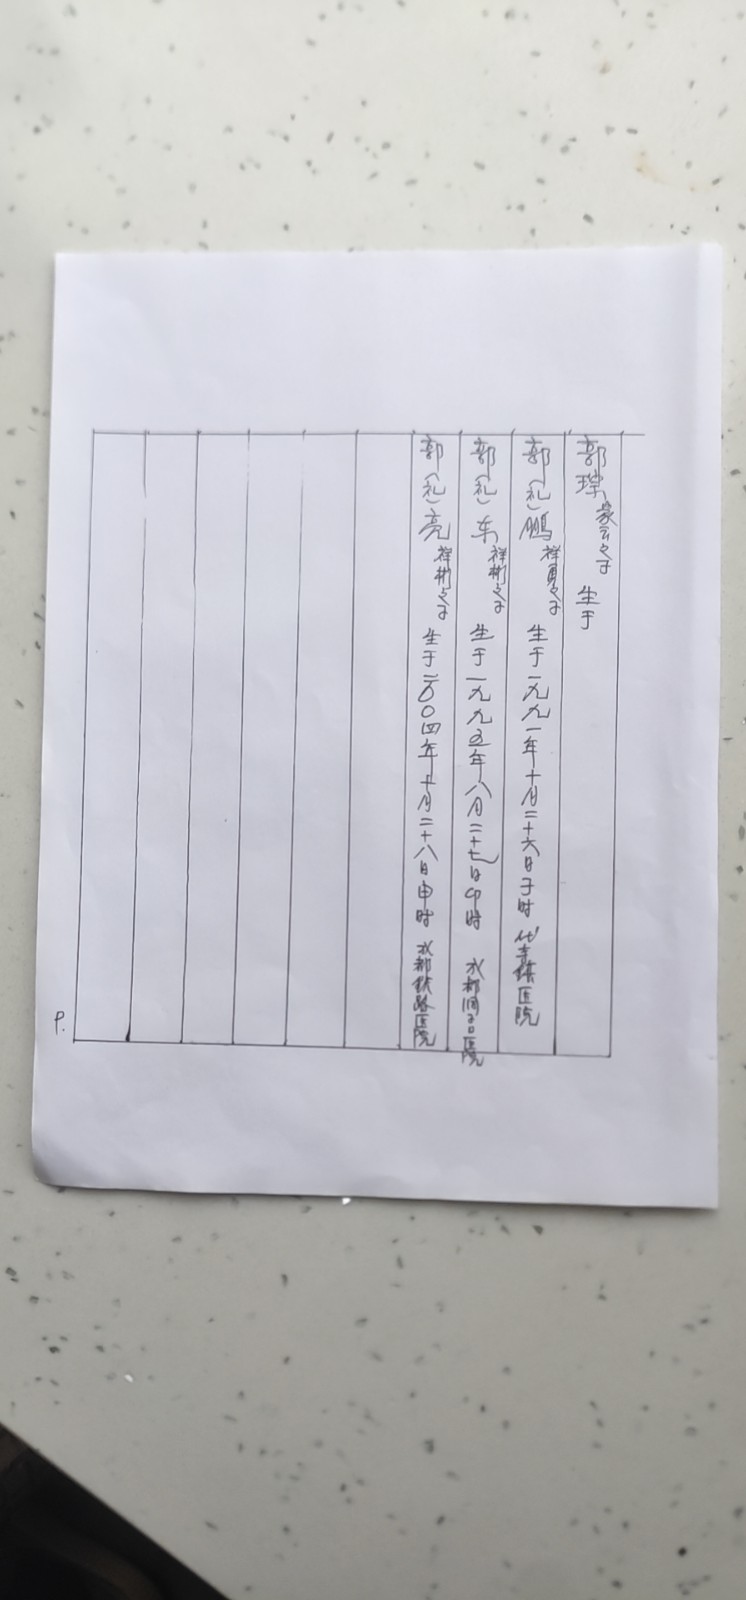 郭 之子 生于
郭(礼)鹏 祥勇之子 生于一九九一年十月二十六日子时 代寺镇医院
郭(礼)东 祥彬之子 生于一九九五年八月二十七日卯时 成都 医院
郭(礼)亮 祥彬之子 生于二00四年十月二十八日申时 成都铁路医院
P.